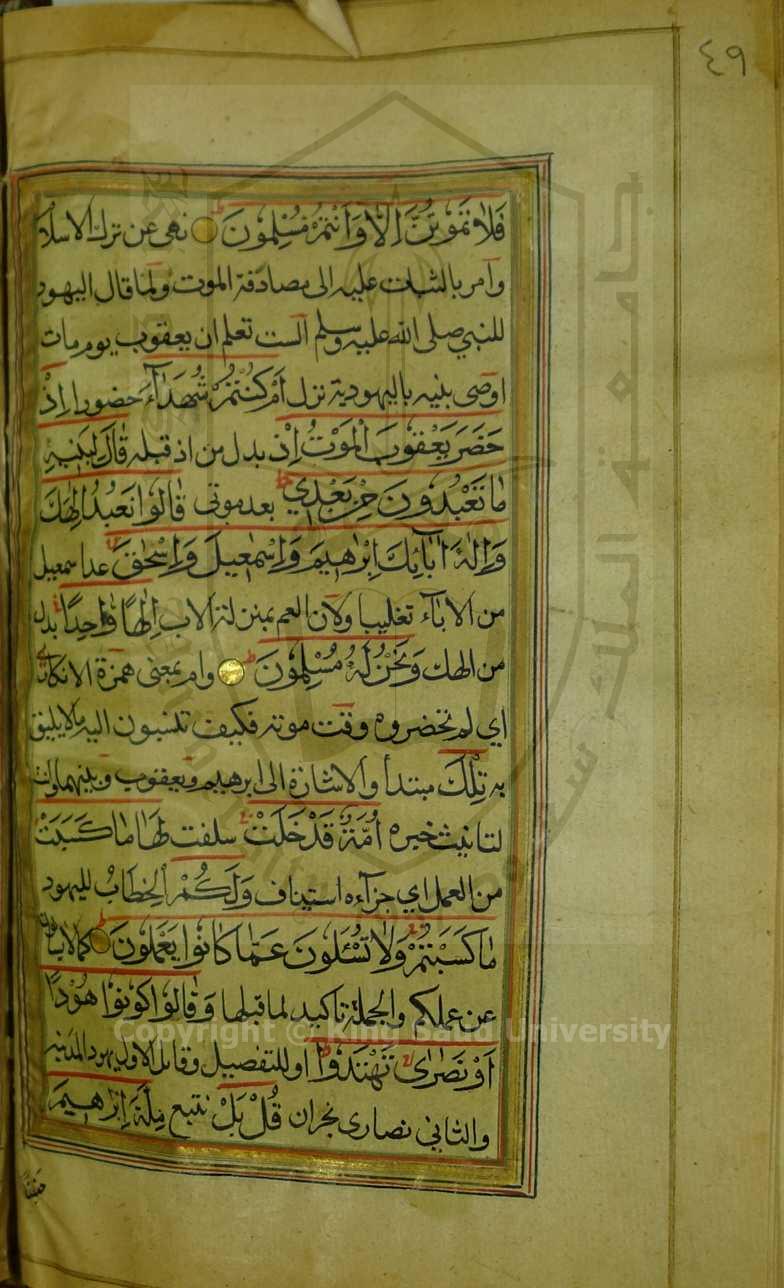 ٤٩
فَلَا تَمُوتُنَّ اِلَّا وَاَنْتُمْ مُسْلِمُونَ نهى عن ترك الاسلام
وامر بالثبات عليه الى مصادفة الموت ولما قال اليهود
للنبي صلى الله عليه وسلم الست تعلم ان يعقوب يوم مات
اوصى بنيه باليهودية نزل اَمْ كُنْتُمْ شُهَدَآءَ حضورا اِذْ
حَضَرَ يَعْقُوبَ الْمَوْتُ اِذْ بدل من اذ قبله قَالَ لِبَنِيهِ
مَا تَعْبُدُونَ مِنْ بَعْدِي بعد موتي قَالُوا نَعْبُدُ اِلٰهَكَ
وَاِلٰهَ اٰبَآئِكَ اِبْرٰهِيمَ وَاِسْمٰعِيلَ وَاِسْحٰقَ عد اسمعيل
من الاباء تغليبا ولان العم بمنزلة الاب اِلٰهًا وَاحِدًا بدل
من الهك وَنَحْنُ لَهُ مُسْلِمُونَ وام بمعنى همزة الانكار
اي لم تحضروه وقت موته فكيف تنسبون اليه ما لا يليق
به تِلْكَ مبتدأ والاشارة الى ابرهيم ويعقوب وبنيهما وانث
لتانيث خبره اُمَّةٌ قَدْ خَلَتْ سلفت لَهَا مَا كَسَبَتْ
من العمل اي جزآءه استيناف وَلَكُمْ الخطاب لليهود
مَا كَسَبْتُمْ وَلَا تُسْئَلُونَ عَمَّا كَانُوا يَعْمَلُونَ كما لا يسألون
عن عملكم والجملة تاكيد لما قبلها وَقَالُوا كُونُوا هُودًا
اَوْ نَصٰرٰى تَهْتَدُوا او للتفصيل وقائل الاول يهود المدينة
والثاني نصارى نجران قُلْ بَلْ نتبع مِلَّةَ اِبْرٰهِيمَ
حَنِيفًا
جامعة الملك سعود
Copyright © King Saud University